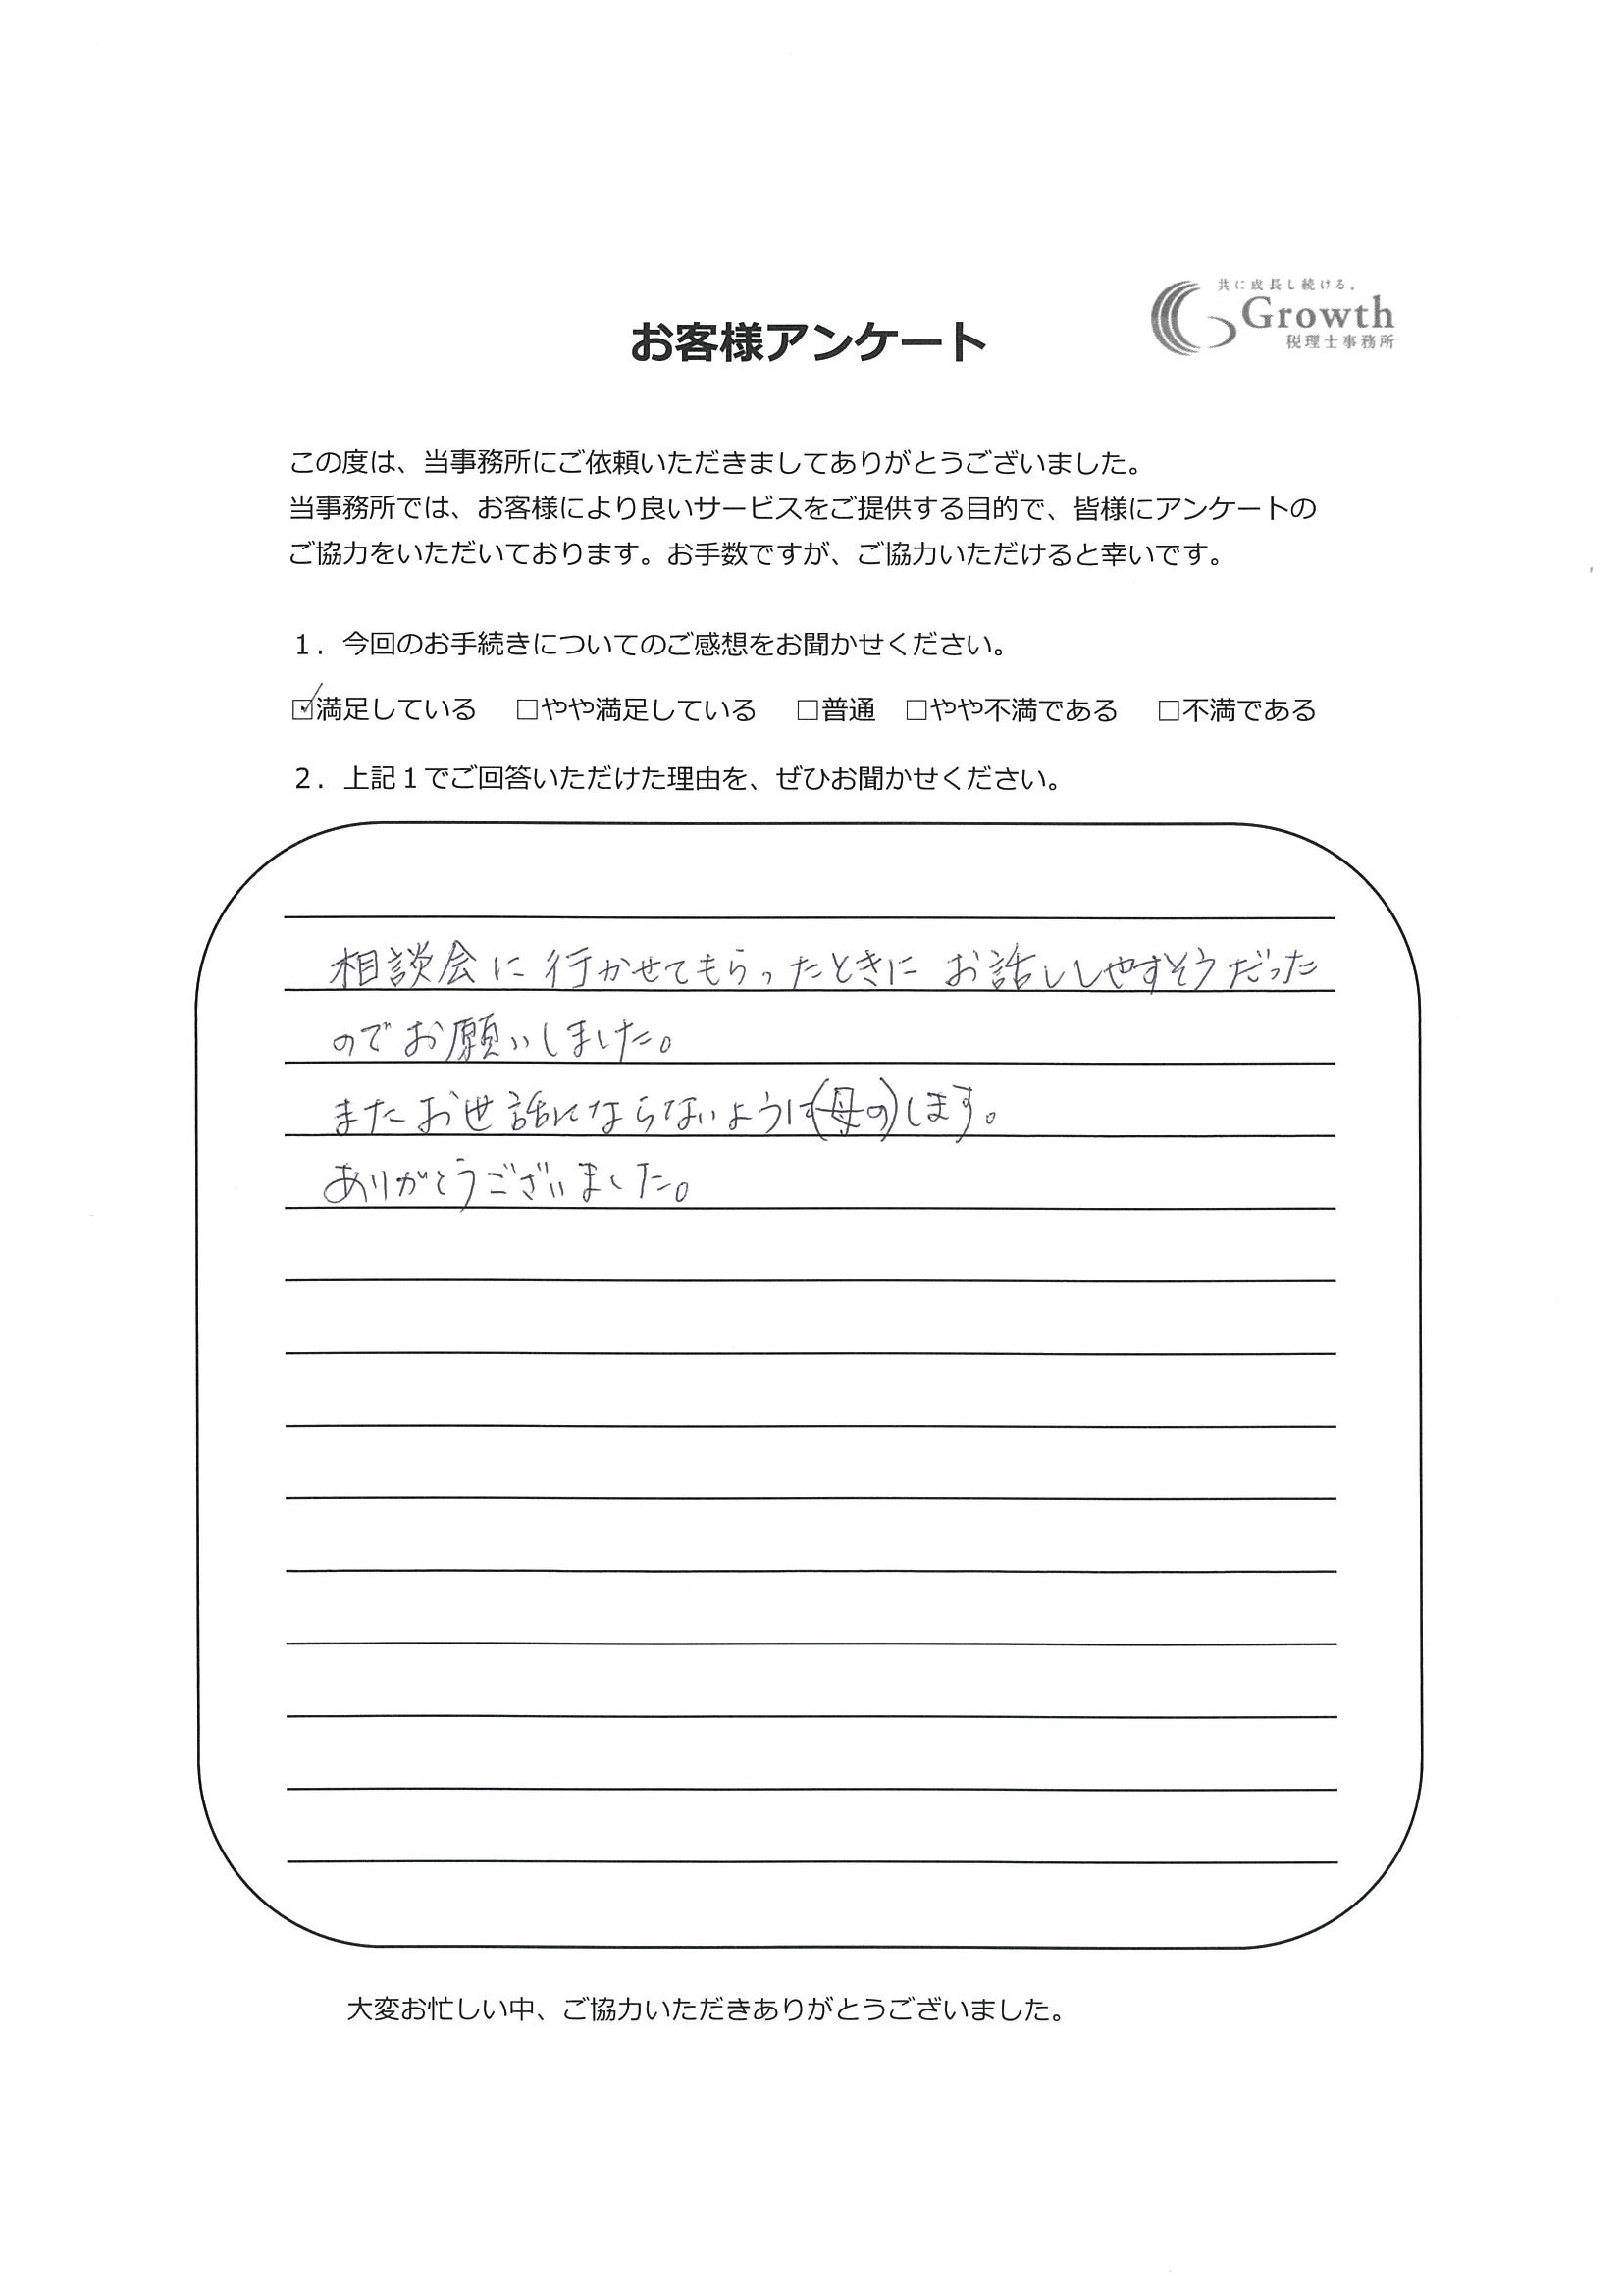 共に成長し続ける。
Growth
税理士事務所
お客様アンケート
この度は、当事務所にご依頼いただきましてありがとうございました。
当事務所では、お客様により良いサービスをご提供する目的で、皆様にアンケートの
ご協力をいただいております。お手数ですが、ご協力いただけると幸いです。
１．今回のお手続きについてのご感想をお聞かせください。
☑満足している　□やや満足している　□普通　□やや不満である　□不満である
２．上記１でご回答いただけた理由を、ぜひお聞かせください。
相談会に行かせてもらったときに お話ししやすそうだった
のでお願いしました。
またお世話にならないように(母の)します。
ありがとうございました。
大変お忙しい中、ご協力いただきありがとうございました。